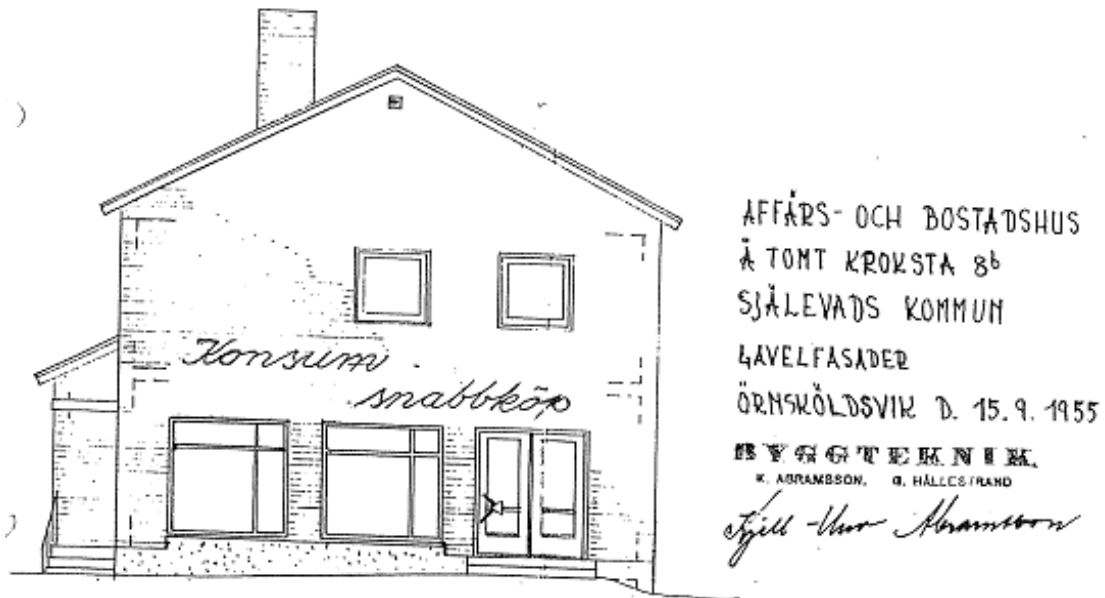 Konsum
snabbköp
AFFÄRS- OCH BOSTADSHUS
Å TOMT KROKSTA 8b
SJÄLEVADS KOMMUN
GAVELFASADER
ÖRNSKÖLDSVIK D. 15.9.1955
BYGGTEKNIK.
K. ABRAMSSON, G. HÄLLESTRAND
Kjell - Abramsson